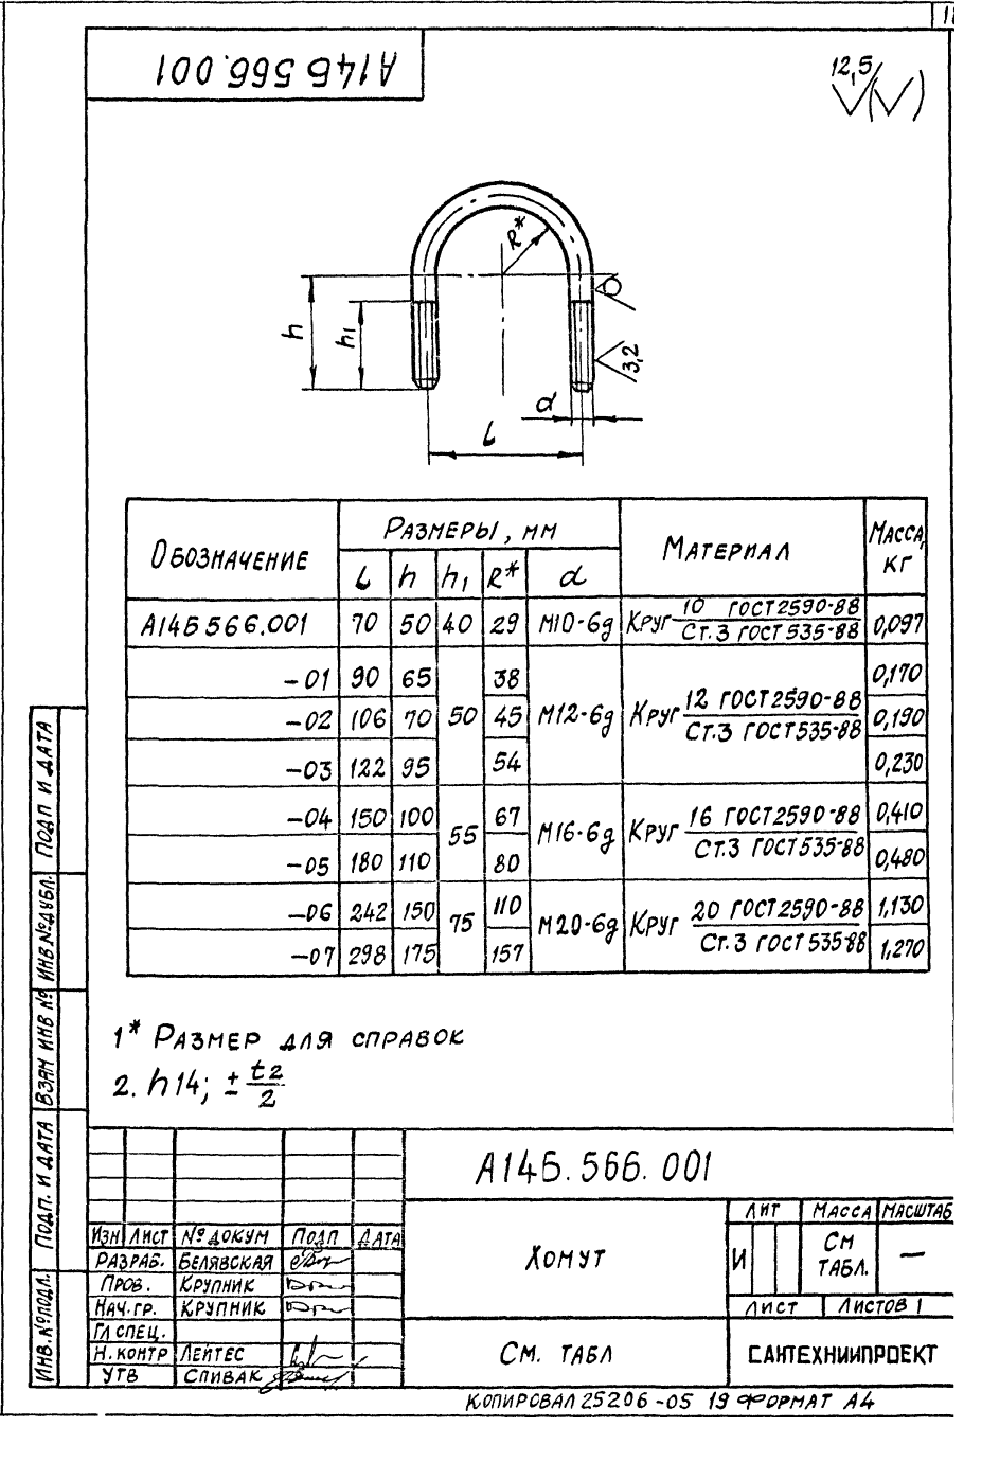 А14Б.566.001
12,5
R*
h
h1
3,2
d
L
Обозначение
Размеры, мм
Материал
Масса, кг
L h h1 R* d
А14Б566.001 70 50 40 29 М10-6g Круг 10 ГОСТ 2590-88 / Ст.3 ГОСТ 535-88 0,097
-01 90 65 50 38 М12-6g Круг 12 ГОСТ 2590-88 / Ст.3 ГОСТ 535-88 0,170
-02 106 70 45 0,190
-03 122 95 54 0,230
-04 150 100 55 67 М16-6g Круг 16 ГОСТ 2590-88 / Ст.3 ГОСТ 535-88 0,410
-05 180 110 80 0,480
-06 242 150 75 110 М20-6g Круг 20 ГОСТ 2590-88 / Ст.3 ГОСТ 535-88 1,130
-07 298 175 157 1,270
1* Размер для справок
2. h14; ± t2/2
Подп и дата
Инв №дубл.
Взам инв №
Подп. и дата
Инв.№подл.
А14Б.566.001
Изм Лист № докум Подп Дата
Разраб. Белявская
Пров. Крупник
Нач.гр. Крупник
Гл спец.
Н.контр Лейтес
Утв Спивак
Хомут
Лит Масса Масштаб
И См табл. —
Лист Листов 1
См. табл
САНТЕХНИИПРОЕКТ
Копировал 25206-05 19 Формат А4